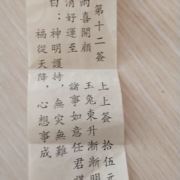 第十二簽　上上簽　拾伍元
雨喜開顏　玉兔東升漸漸明
消好運至　諸事如意任君
曰：神明護持，無災無難
福從天降，心想事成